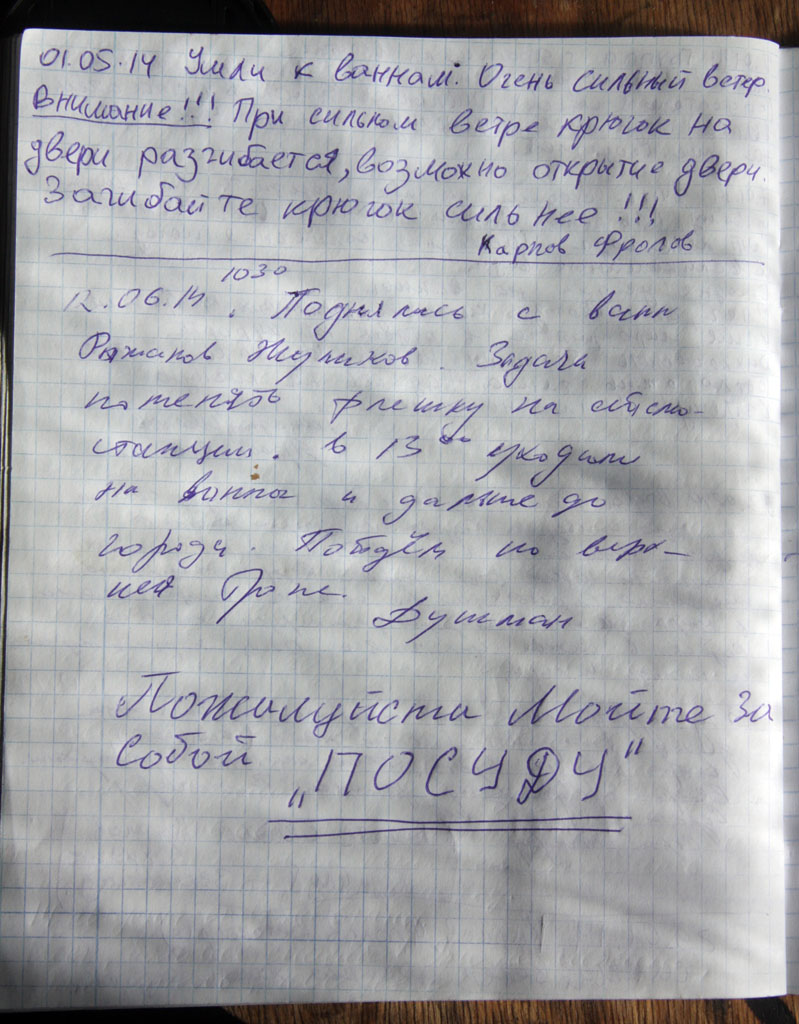 01.05.14 Ушли к ваннам. Очень сильный ветер.
Внимание!!! При сильном ветре крючок на
двери разгибается, возможно открытие двери.
Загибайте крючок сильнее!!!
Карпов Фролов
12.06.14. 10³⁰ Поднялись с ванн
Жуликов. Задача
поменять флешку на
станции. в 13⁰⁰ уходим
на ванны и дальше до
города. Пойдём по верх-
ней тропе.
Душман
Пожалуйста Мойте за
собой „ПОСУДУ"